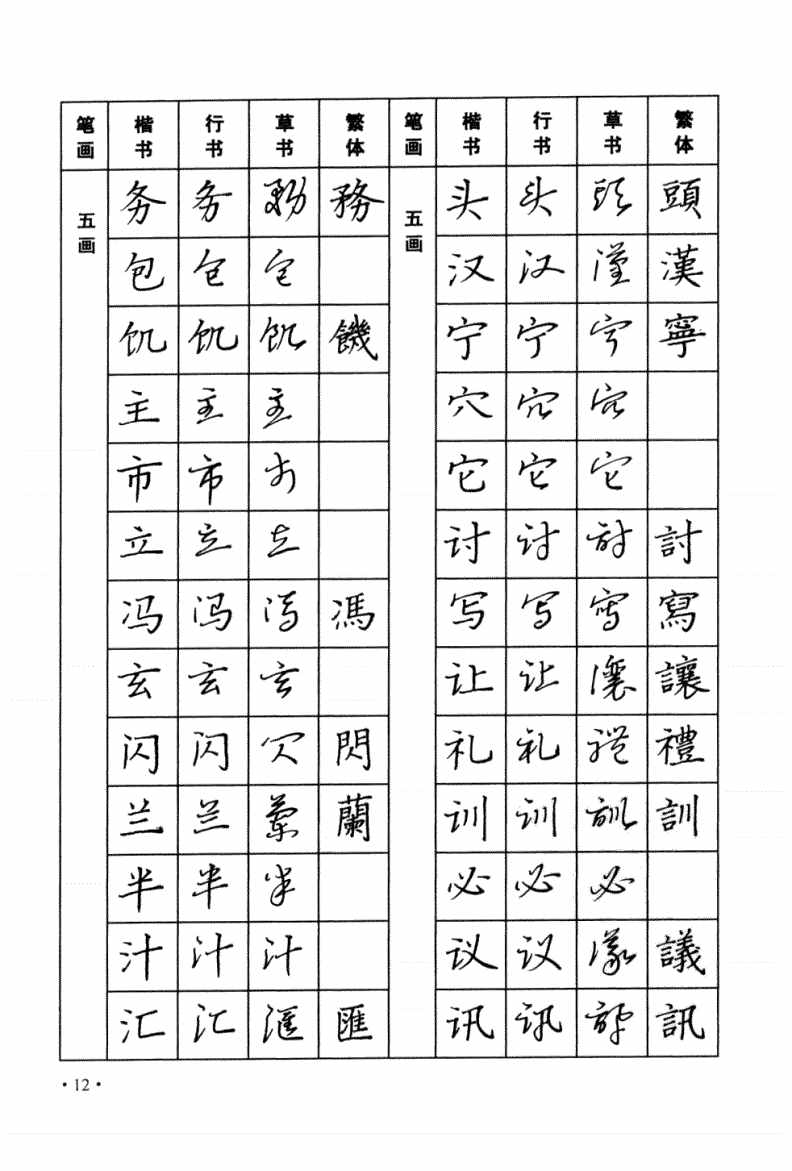 笔画 楷书 行书 草书 繁体 笔画 楷书 行书 草书 繁体
五画 务 务 务 務 五画 头 头 头 頭
包 包 包 汉 汉 汉 漢
饥 饥 饥 饑 宁 宁 宁 寧
主 主 主 穴 穴 穴
市 市 市 它 它 它
立 立 立 讨 讨 讨 討
冯 冯 冯 馮 写 写 写 寫
玄 玄 玄 让 让 让 讓
闪 闪 闪 閃 礼 礼 礼 禮
兰 兰 兰 蘭 训 训 训 訓
半 半 半 必 必 必
汁 汁 汁 议 议 议 議
汇 汇 汇 匯 讯 讯 讯 訊
·12·